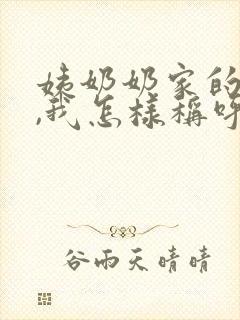 姨奶奶家的
,我怎样称呼
谷雨天晴晴